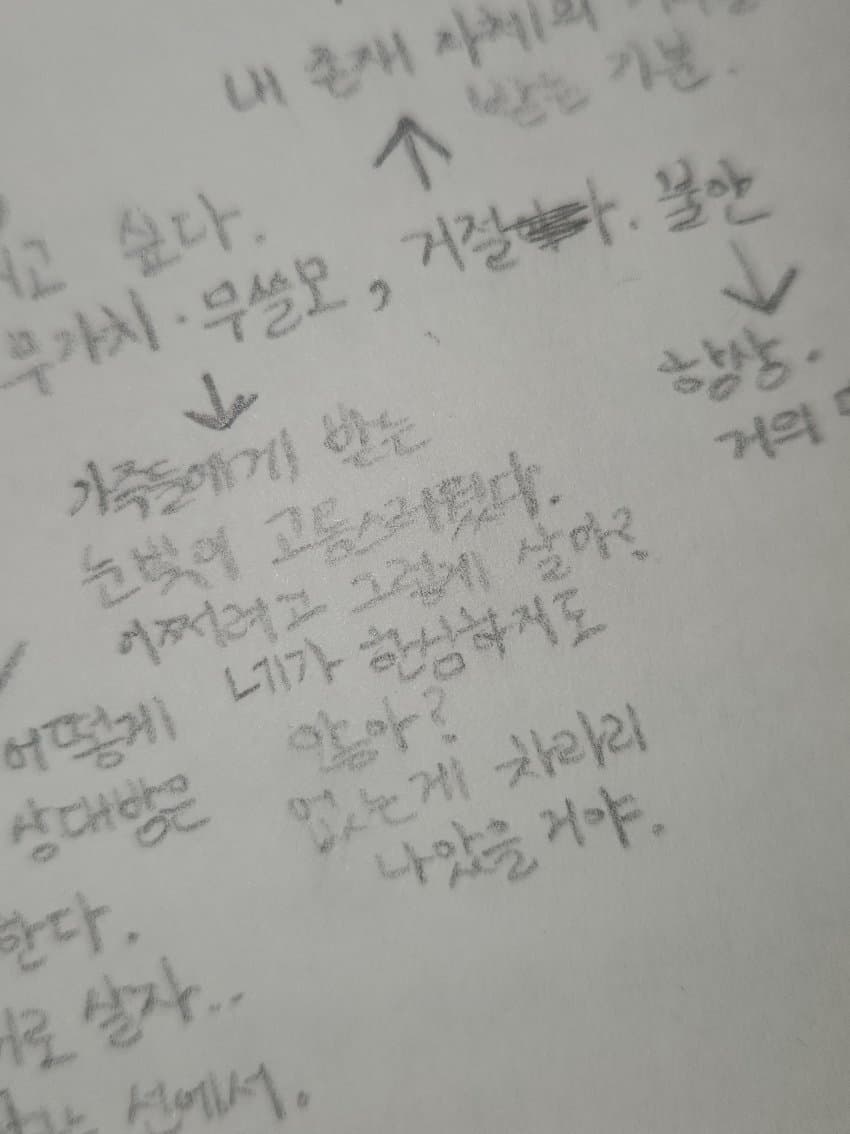 내 존재 자체의
받는 기분.
싶다.
무가치·무쓸모, 거절 불안
항상.
거의
가족들에게 받는
눈빛이 고통스러웠다.
어쩌려고 그렇게 살아?
네가 한심하지도
않아?
없는게 차라리
나았을 거야.
어떻게
상대방은
한다.
살자..
선에서.